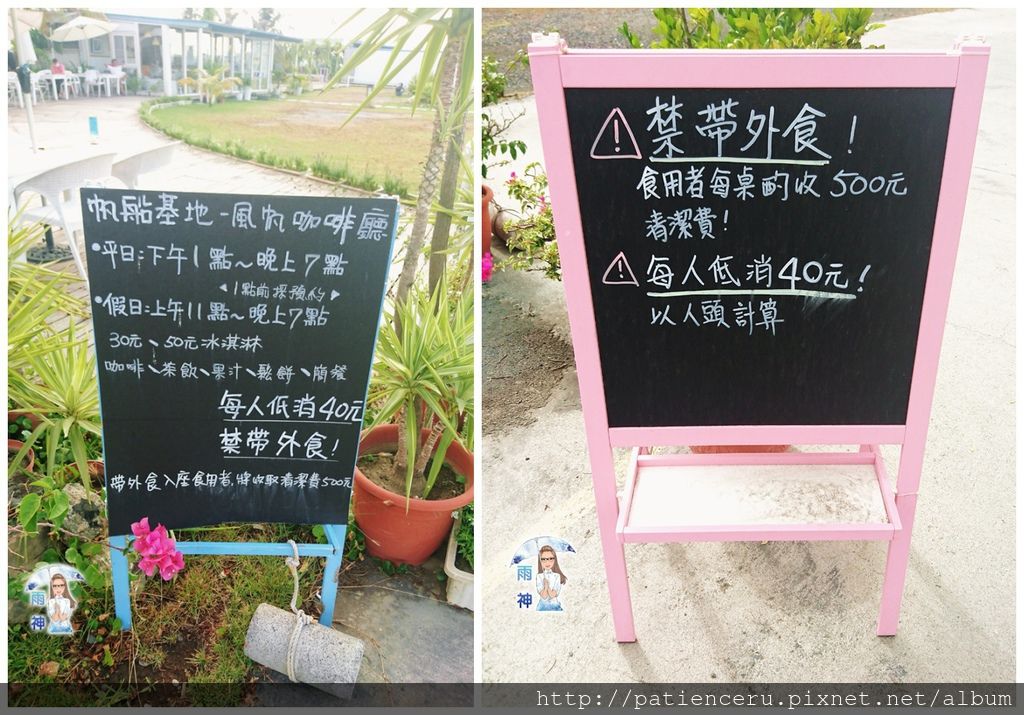 帆船基地-風帆咖啡廳
•平日:下午1點~晚上7點
◀1點前採預約▶
•假日:上午11點~晚上7點
30元、50元冰淇淋
咖啡、茶飲、果汁、鬆餅、簡餐
每人低消40元
禁帶外食!
帶外食入座食用者,將收取清潔費500元
雨神
⚠禁帶外食!
食用者每桌酌收500元
清潔費!
⚠每人低消40元!
以人頭計算
雨神
http://patienceru.pixnet.net/album